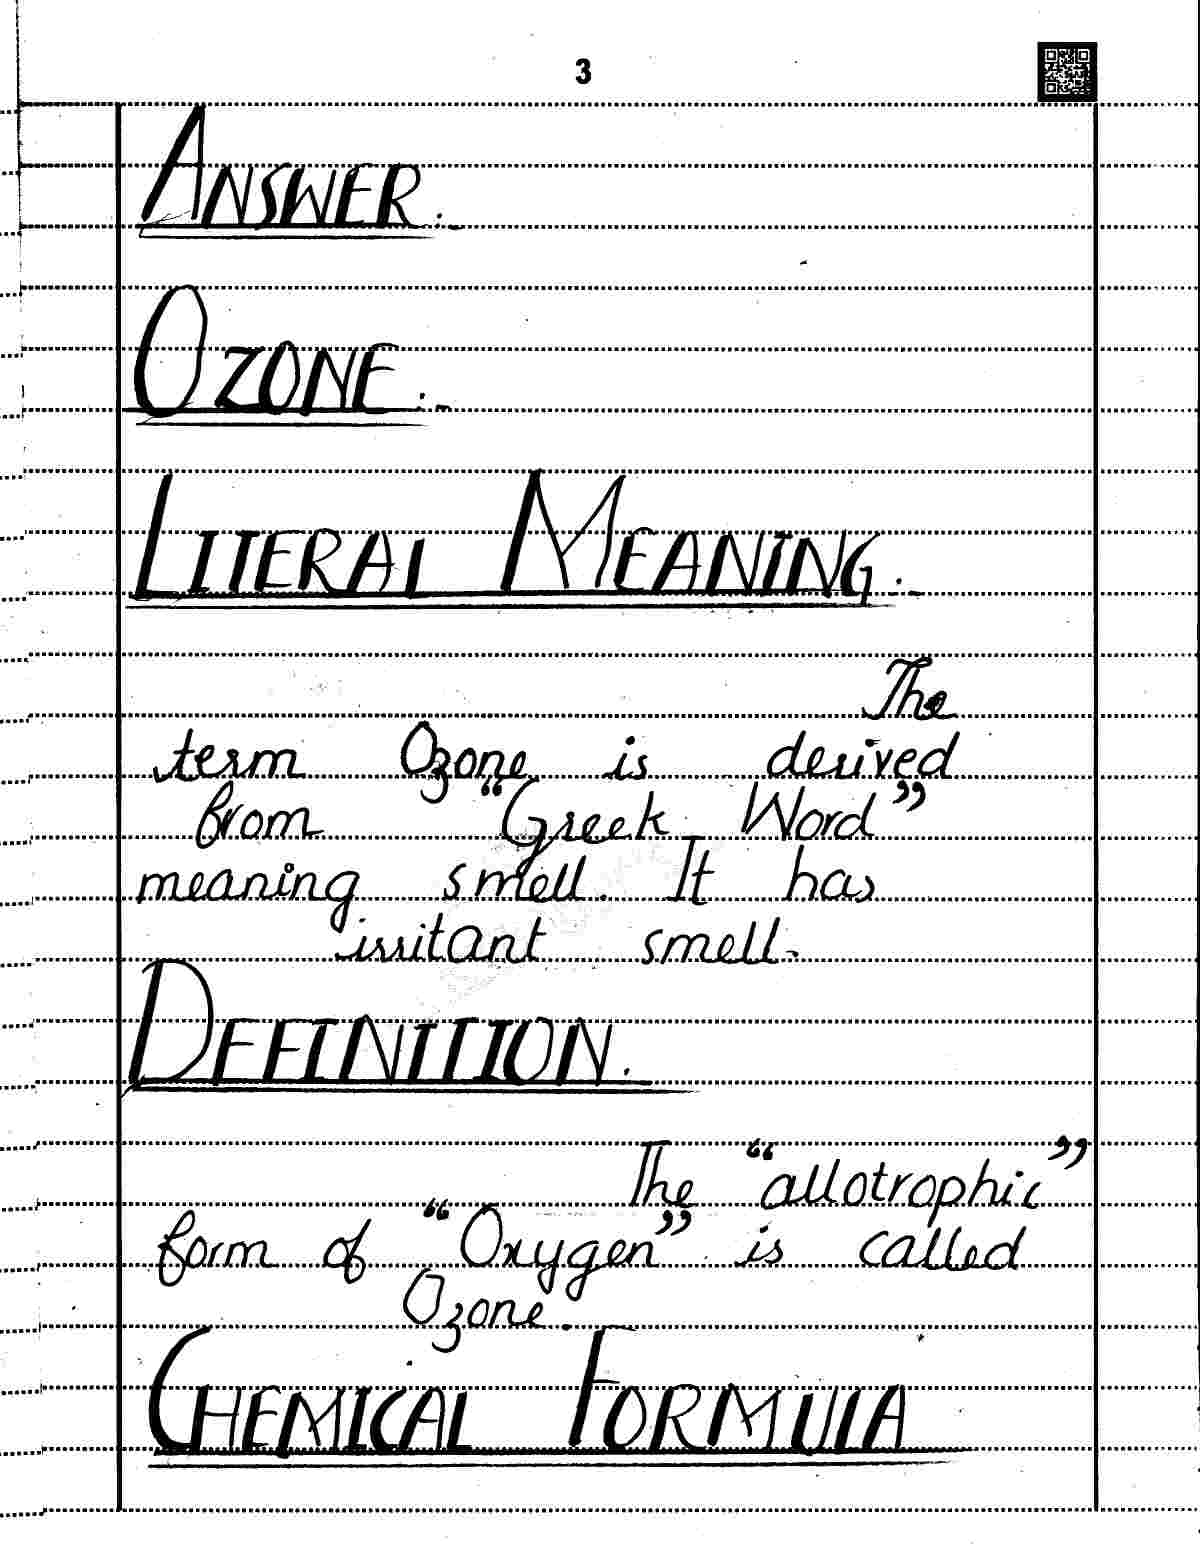 3
ANSWER:-
OZONE:-
LITERAL MEANING:-
The
term Ozone is derived
from "Greek Word"
meaning smell. It has
irritant smell.
DEFINITION.
The "allotrophic"
form of "Oxygen" is called
Ozone.
CHEMICAL FORMULA